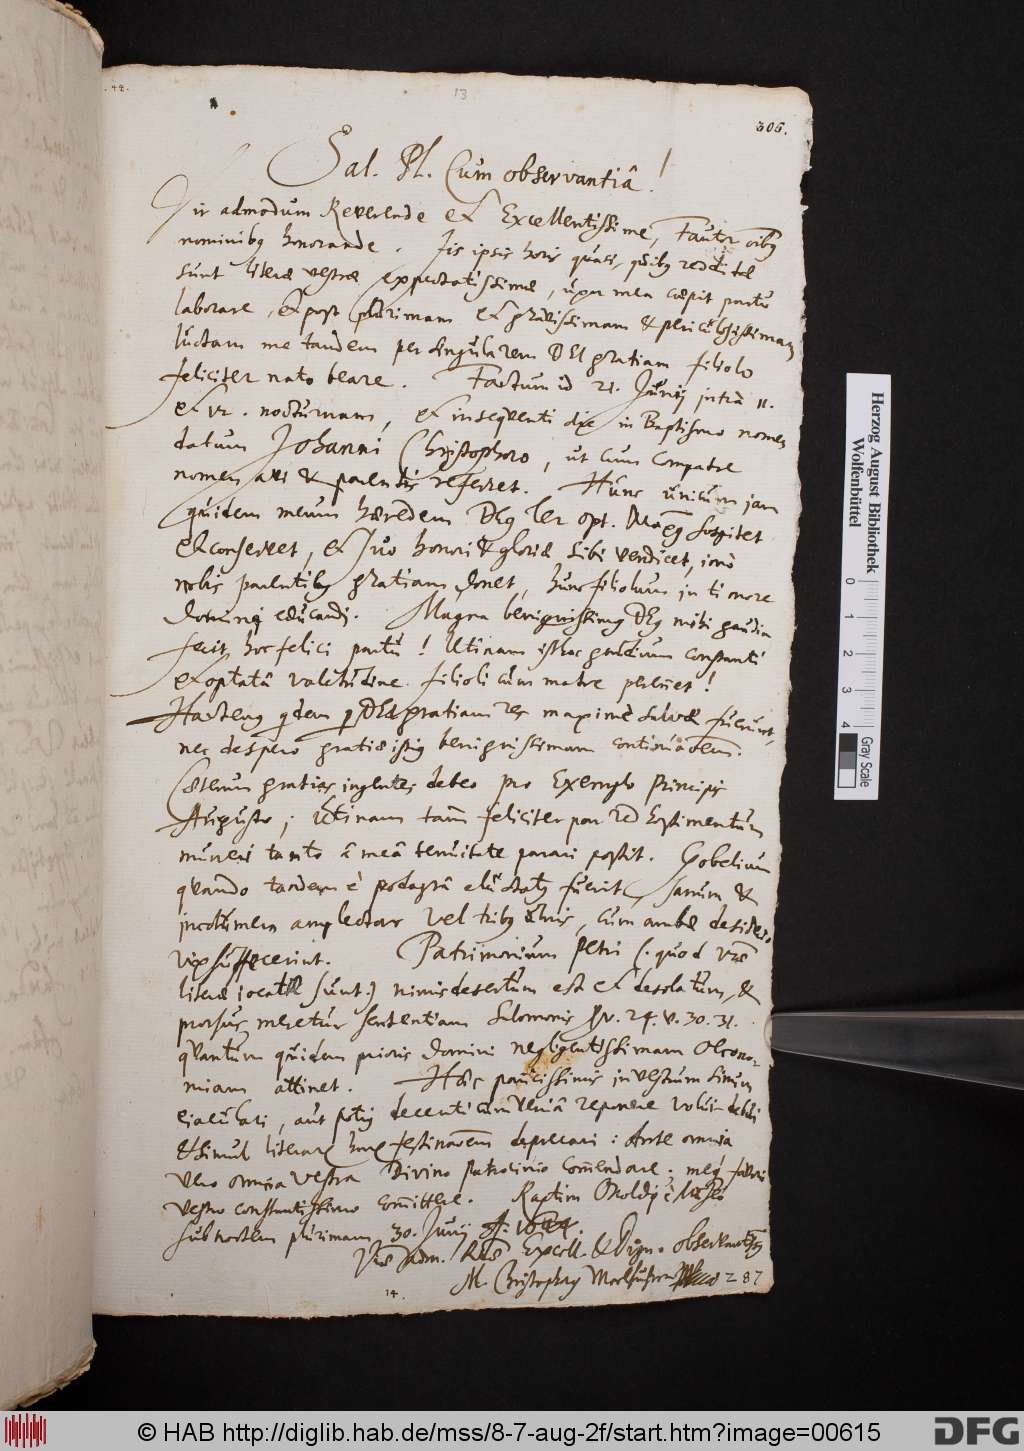 13
306.
Sal. Pl. Cum observantiâ!
Vir admodum Reverende et Excellentissime, Fautor oībq
nominibq honorande. Iis ipsis horis quasi, quibq redditæ
sunt literæ vestræ expectatissimæ, uxor mea cœpit partu
laborare, et post plurimam et gravissimam & periculosissimam
luctam me tandem per singularem DEI gratiam filiolo
feliciter nato beare. Factum id 21. Junij intra 11.
et 12. nocturnam, et insequenti die in Baptismo nomen
datum Johanni Christophoro, ut cum Compatre
nomen avi & parentis referret. Hunc unicum jam
quidem meum hæredem DEq ter opt. Max sospitet
et conservet, et suo honori & gloriæ sibi vendicet, imò
nobis parentibq gratiam donet, hunc filiolum in timore
Domini educandi. Magna benignissimq DEq mihi gaudia
fecit hoc felici partu! Utinam isthoc gaudium constanti
et optatâ valetudine filioli cum matre perennet!
Hactenq qdem p DEI gratiam res maximè salvæ fuerunt,
nec despero gratiæ istiq benignissimam continuāōem.
Cæterum gratias ingentes debeo pro Exemplo Principis
Augusto; Utinam tam feliciter par redhostimentum
muneri tanto â meâ tenuitate parari possit. Gobelium
quando tandem è podagrâ eluctatq fuerit, sanum &
incolumem amplector vel tribq ulnis, cum ambæ desiderio
vix suffecerint. Patrimonium Petri (: quod vræ
literæ jocatæ sunt:) nimis desertum est et desolatum, &
prorsus meretur sententiam Salomonis Pr. 24. v. 30. 31.
quantum quidem prioris Domini negligentissimam Oecono-
miam attinet. Hæc paucissimis in vestrum sinum
ejaculari, aut potiq decenti cum veniâ reponere volui debui
et simul literarum harum festināōem deprecari: Ante omnia
vero omnia vestra Divino patrocinio commendare. meq favori
vestro constantissimo committere. Raptim
sub noctem plurimam 30. Junij A. 1644.
Vræ adm. Excell. & Dign. observant
M. Christophorq
287
14.
Herzog August Bibliothek
Wolfenbüttel
0 1 2 3 4
Gray Scale
© HAB http://diglib.hab.de/mss/8-7-aug-2f/start.htm?image=00615
DFG